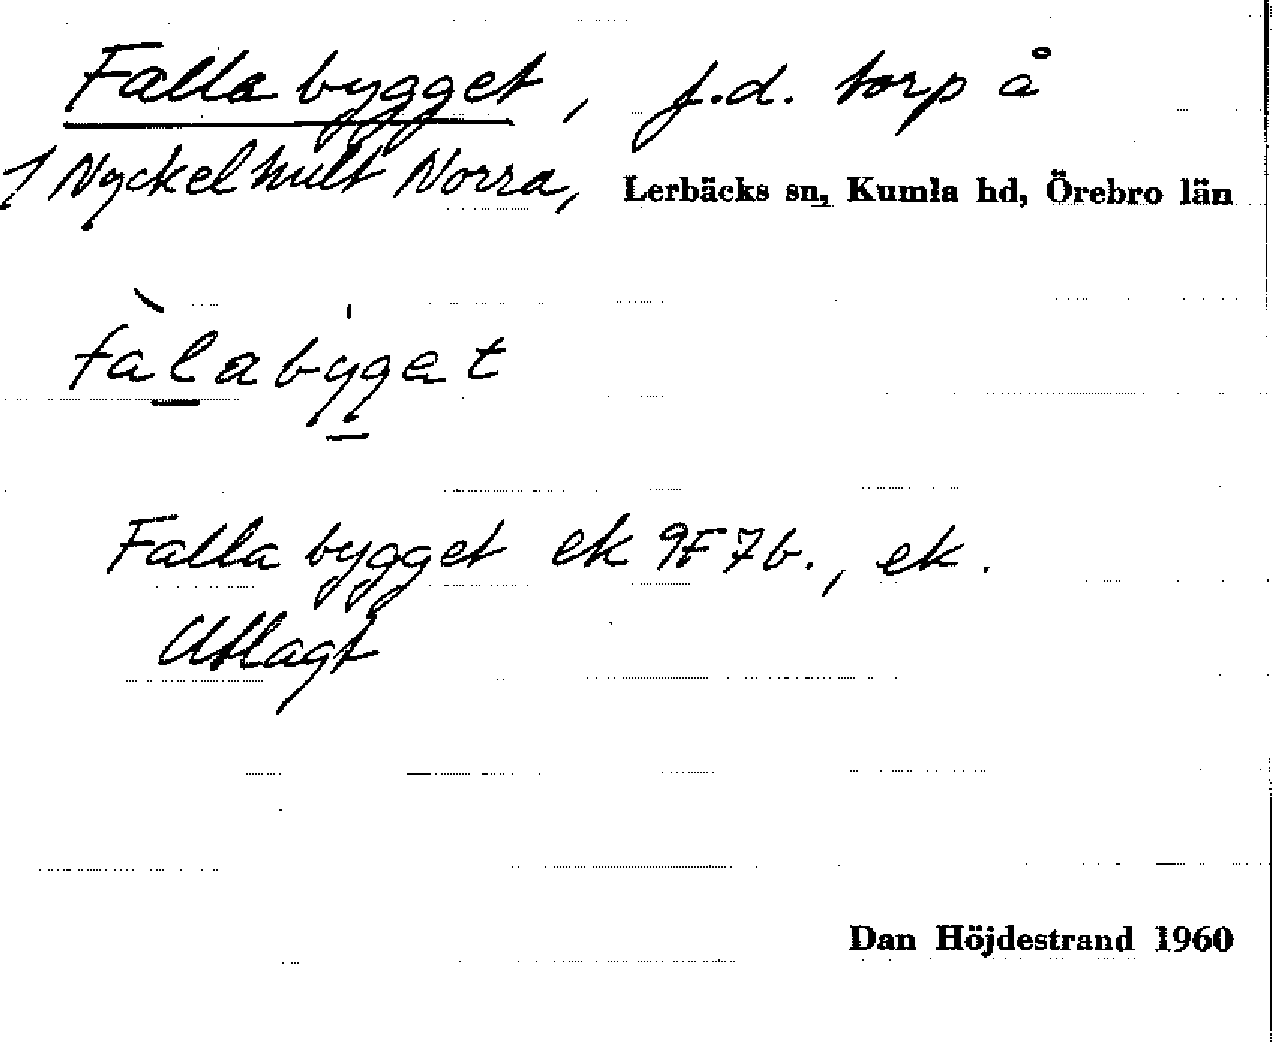 Fallabygget, f.d. torp å
1 Nyckelhult Norra, Lerbäcks sn, Kumla hd, Örebro län
fàlabýgat
Fallabygget ek 9F7b., ek.
Utlagt
Dan Höjdestrand 1960